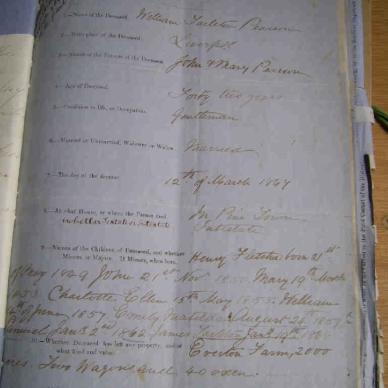 1.—Name of the Deceased, William Tarleton Pearson
2.—Birth-place of the Deceased, Liverpool
3.—Names of the Parents of the Deceased, John & Mary Pearson
4.—Age of Deceased, Forty two years
5.—Condition in life, or Occupation, Gentleman
6.—Married or Unmarried, Widower or Widow, Married
7.—The day of the decease, 12th of March 1864
8.—At what House, or where the Person died In Pine Town
Intestate
9.—Names of the Children of Deceased, and whether Henry Tarleton born 21st
Minors or Majors. If Minors, when born.
of May 1849 John 21st Nov 1850. Mary 19th March
1853. Charlotte Ellen 15th May 1855. William
of June, 1857. Emily August 24th 1859.
Jan 2nd 1862 James Jan 1864
10.—Whether Deceased has left any property, and of Everton Farm, 2000
what kind and value.
acres. Two Wagons and 40 oxen.